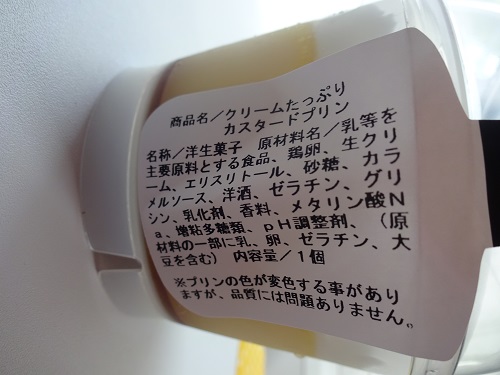 商品名／クリームたっぷり
カスタードプリン
名称／洋生菓子 原材料名／乳等を
主要原料とする食品、鶏卵、生クリ
ーム、エリスリトール、砂糖、カラ
メルソース、洋酒、ゼラチン、グリ
シン、乳化剤、香料、メタリン酸N
a、増粘多糖類、pH調整剤、（原
材料の一部に乳、卵、ゼラチン、大
豆を含む） 内容量／1個
※プリンの色が変色する事があり
ますが、品質には問題ありません。